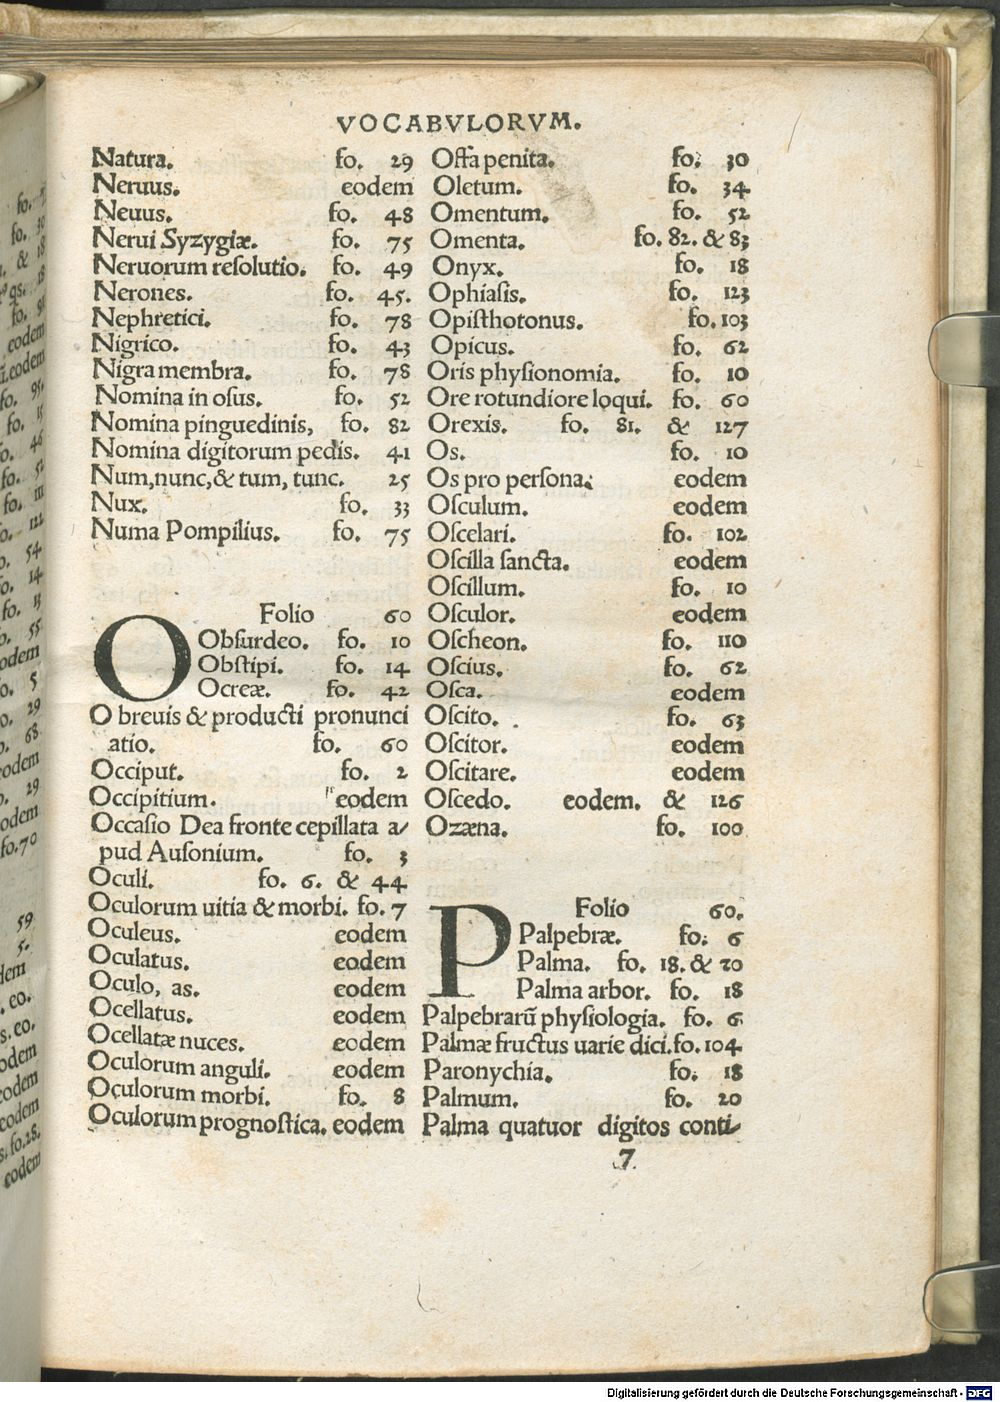 VOCABVLORVM.
Natura. fo. 29
Neruus. eodem
Neuus. fo. 48
Nerui Syzygiæ. fo. 75
Neruorum reſolutio. fo. 49
Nerones. fo. 45.
Nephretici. fo. 78
Nigrico. fo. 43
Nigra membra. fo. 78
Nomina in oſus. fo. 52
Nomina pinguedinis, fo. 82
Nomina digitorum pedis. 41
Num,nunc,& tum, tunc. 25
Nux. fo. 33
Numa Pompilius. fo. 75
O Folio 60
Obſurdeo. fo. 10
Obſtipi. fo. 14
Ocreæ. fo. 42
O breuis & producti pronunci
atio. fo. 60
Occiput. fo. 2
Occipitium. eodem
Occaſio Dea fronte cepillata a/
pud Auſonium. fo. 3
Oculi. fo. 6. & 44
Oculorum uitia & morbi. fo. 7
Oculeus. eodem
Oculatus. eodem
Oculo, as. eodem
Ocellatus. eodem
Ocellatæ nuces. eodem
Oculorum anguli. eodem
Oculorum morbi. fo. 8
Oculorum prognoſtica. eodem
Oſſa penita. fo. 30
Oletum. fo. 34
Omentum. fo. 52
Omenta. fo. 82. & 83
Onyx. fo. 18
Ophiaſis. fo. 123
Opiſthotonus. fo. 103
Opicus. fo. 62
Oris phyſionomia. fo. 10
Ore rotundiore loqui. fo. 60
Orexis. fo. 81. & 127
Os. fo. 10
Os pro perſona. eodem
Oſculum. eodem
Oſcelari. fo. 102
Oſcilla ſancta. eodem
Oſcillum. fo. 10
Oſculor. eodem
Oſcheon. fo. 110
Oſcius. fo. 62
Oſca. eodem
Oſcito. fo. 63
Oſcitor. eodem
Oſcitare. eodem
Oſcedo. eodem. & 126
Ozæna. fo. 100
P Folio 60.
Palpebræ. fo. 6
Palma. fo. 18. & 20
Palma arbor. fo. 18
Palpebrarū phyſiologia. fo. 6
Palmæ fructus uarie dici. fo. 104
Paronychia. fo. 18
Palmum. fo. 20
Palma quatuor digitos conti/
7
Digitalisierung gefördert durch die Deutsche Forschungsgemeinschaft - DFG